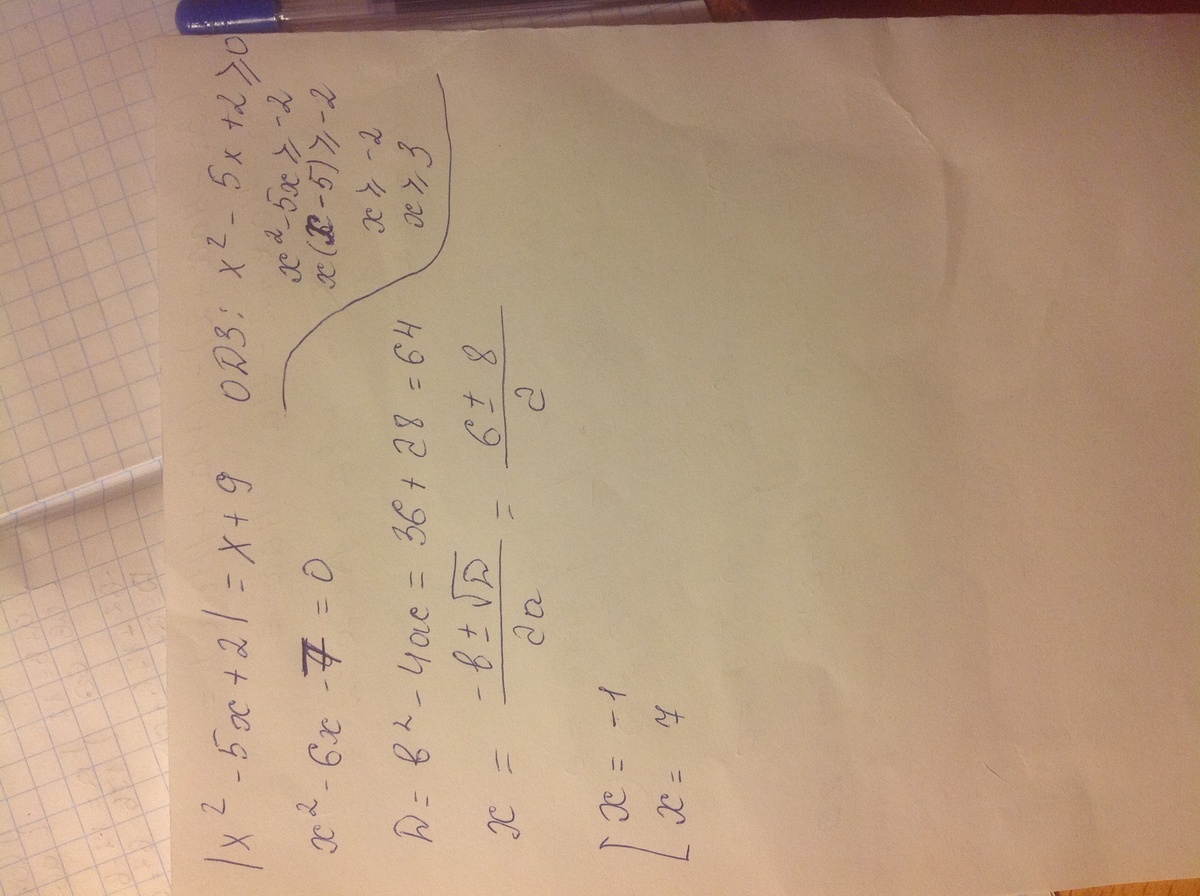 |x² - 5x + 2| = x + 9 ОДЗ: x² - 5x + 2 ⩾ 0
x² - 5x ⩾ -2
x(x - 5) ⩾ -2
x ⩾ -2
x ⩾ 3
x² - 6x - 7 = 0
D = b² - 4ac = 36 + 28 = 64
x = (-b ± √D)/2a = (6 ± 8)/2
[ x = -1
x = 7